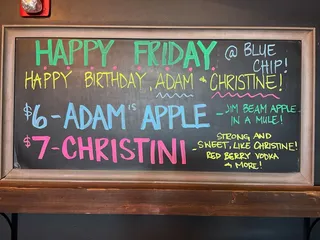 HAPPY FRIDAY @ BLUE CHIP!
HAPPY BIRTHDAY, ADAM & CHRISTINE!
$6 - ADAM'S APPLE - JIM BEAM APPLE IN A MULE!
$7 - CHRISTINI - STRONG AND SWEET, LIKE CHRISTINE! RED BERRY VODKA & MORE!